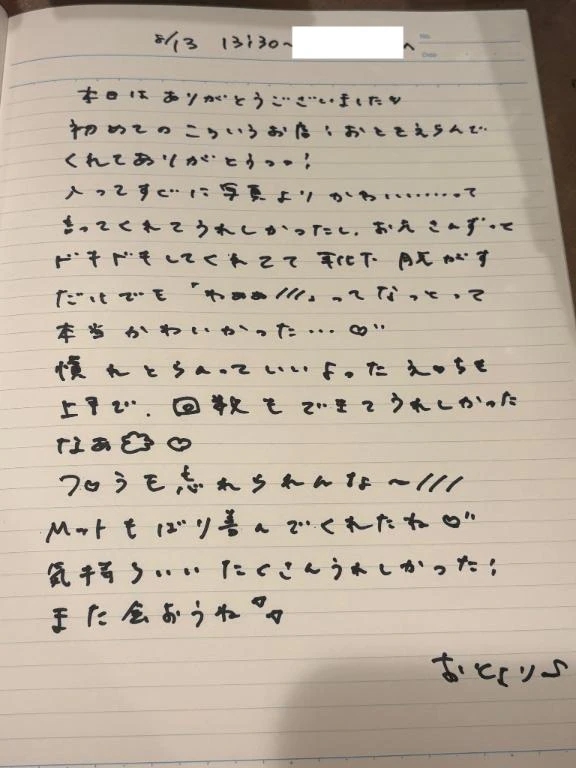 8/13 13:30~ へ
No.
Date
本日はありがとうございました♡
初めてのこういうお店!おとをえらんで
くれてありがとうっっ!
入ってすぐに写真よりかわい………って
言ってくれてうれしかったし、おえさんずって
ドキドキしてくれてて 靴下 脱がす
だけでも「わぁぁ///」ってなっとって
本当かわいかった…♡"
慣れとらんっていいよったえ♡ちも
上手で、回数もできてうれしかった
なぁ♡
フ♡うも忘れられんな〜///
Mットもばり喜んでくれたね♡"
気持ちいいたくさんうれしかった!
また会おうね♡♡
おとより♪